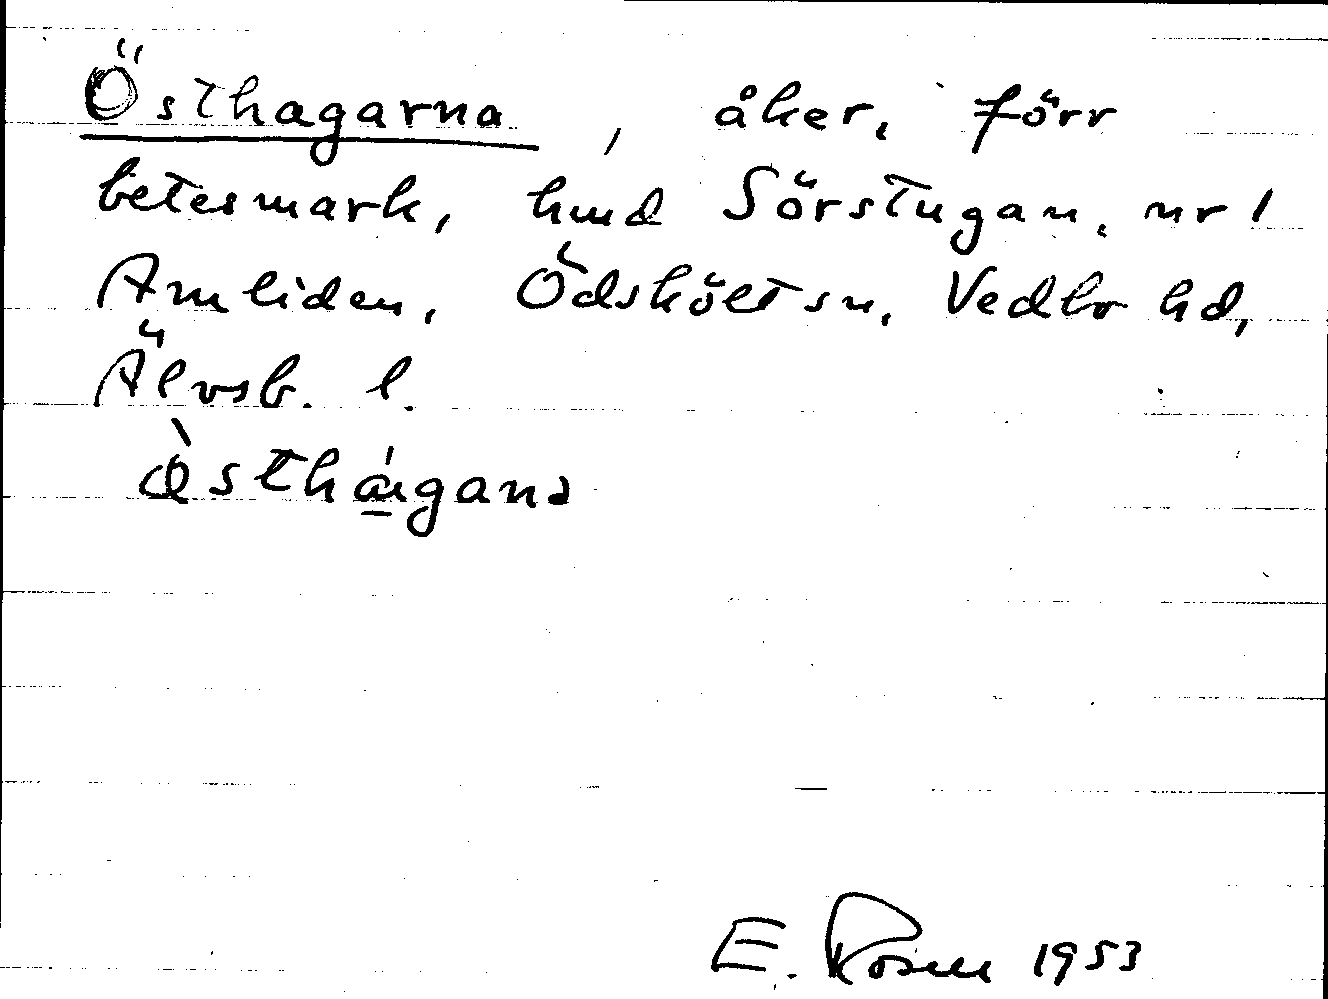 Östhagarna, åker, förr
betesmark, hmd Sörstugan, nr 1
Amliden, Ödskölt sn, Vedbo hd,
Älvsb. l.
E. Rosell 1953